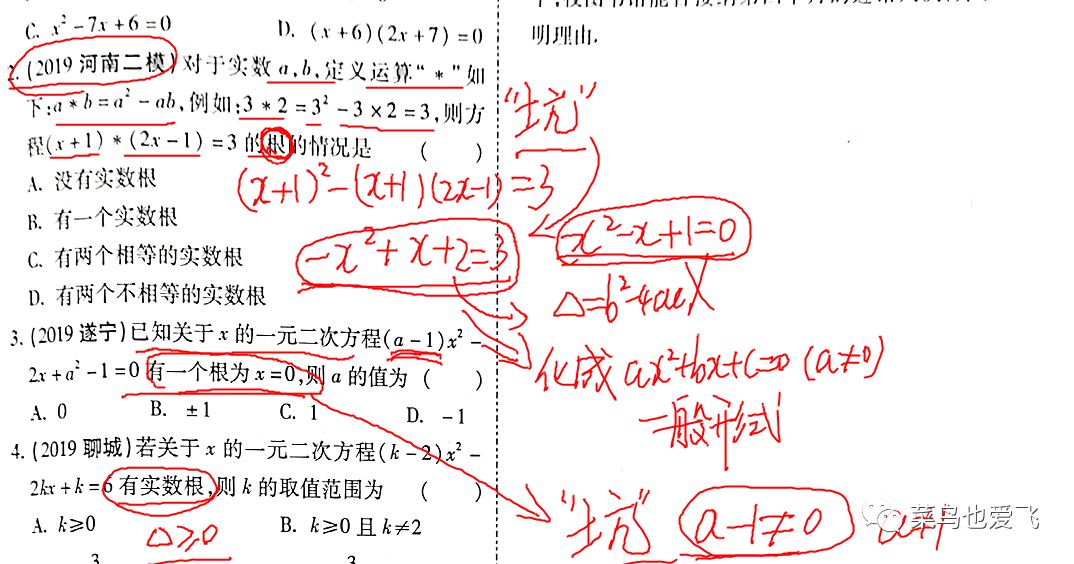 C. x²-7x+6=0 D. (x+6)(2x+7)=0
2. (2019 河南二模)对于实数 a,b,定义运算“*”如
下:a*b=a²-ab,例如:3*2=3²-3×2=3,则方
程(x+1)*(2x-1)=3的根的情况是 ( )
(x+1)²-(x+1)(2x-1)=3
A. 没有实数根
B. 有一个实数根
C. 有两个相等的实数根
D. 有两个不相等的实数根
-x²+x+2=3
3. (2019 遂宁)已知关于 x 的一元二次方程(a-1)x²-
2x+a²-1=0 有一个根为 x=0,则 a 的值为 ( )
A. 0 B. ±1 C. 1 D. -1
4. (2019 聊城)若关于 x 的一元二次方程(k-2)x²-
2kx+k=6 有实数根,则 k 的取值范围为 ( )
A. k≥0 B. k≥0 且 k≠2
△≥0
3 3
明理由.
“土坑”
x²-x+1=0
△=b²-4ac
化成 ax²+bx+c=0 (a≠0)
一般形式
“土坑” a-1≠0
菜鸟也爱飞